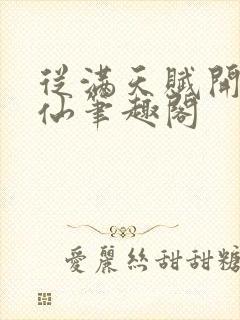 從滿天賦開
仙筆趣閣
愛麗絲甜甜糖